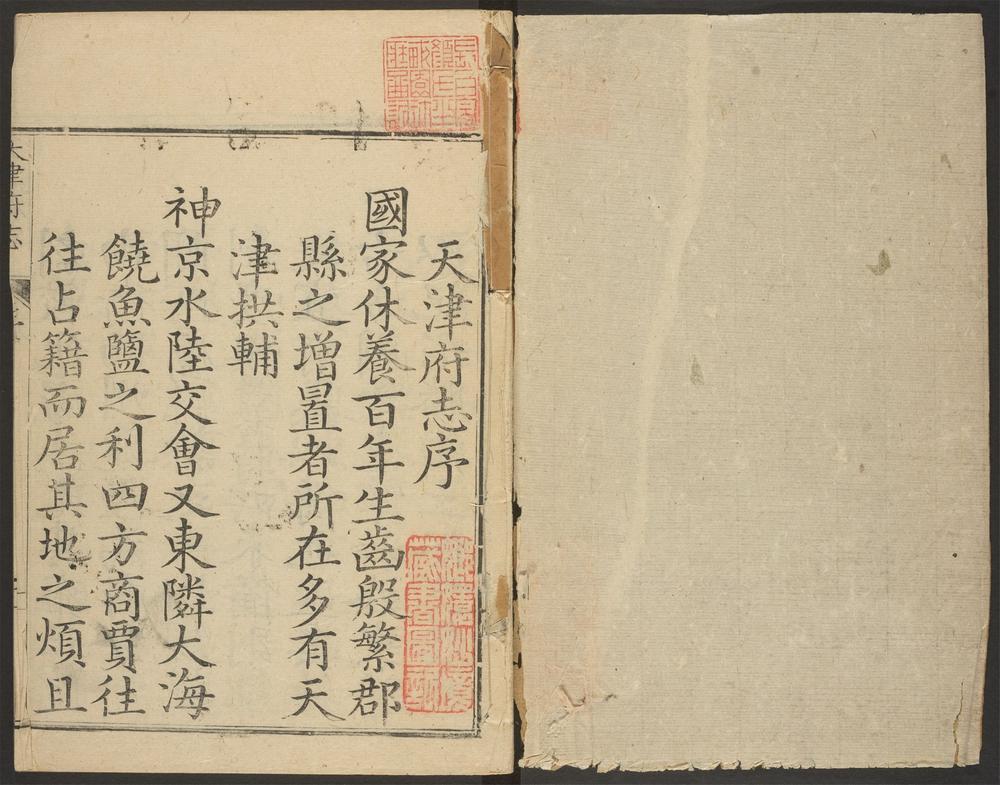 天津府志序
國家休養百年生齒殷繁郡
縣之增置者所在多有天
津拱輔
神京水陸交會又東隣大海
饒魚鹽之利四方商賈往
往占籍而居其地之煩且
天津府志